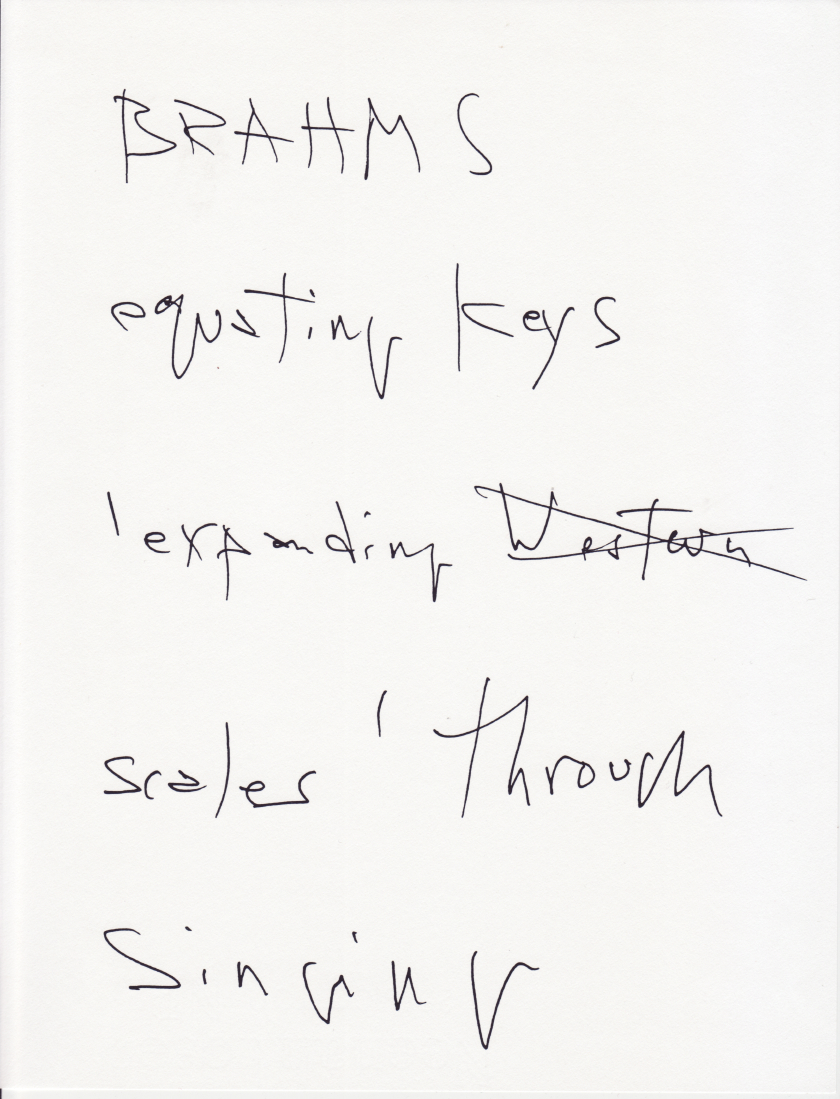 BRAHMS
equating keys
'expanding Western
scales' through
Singing